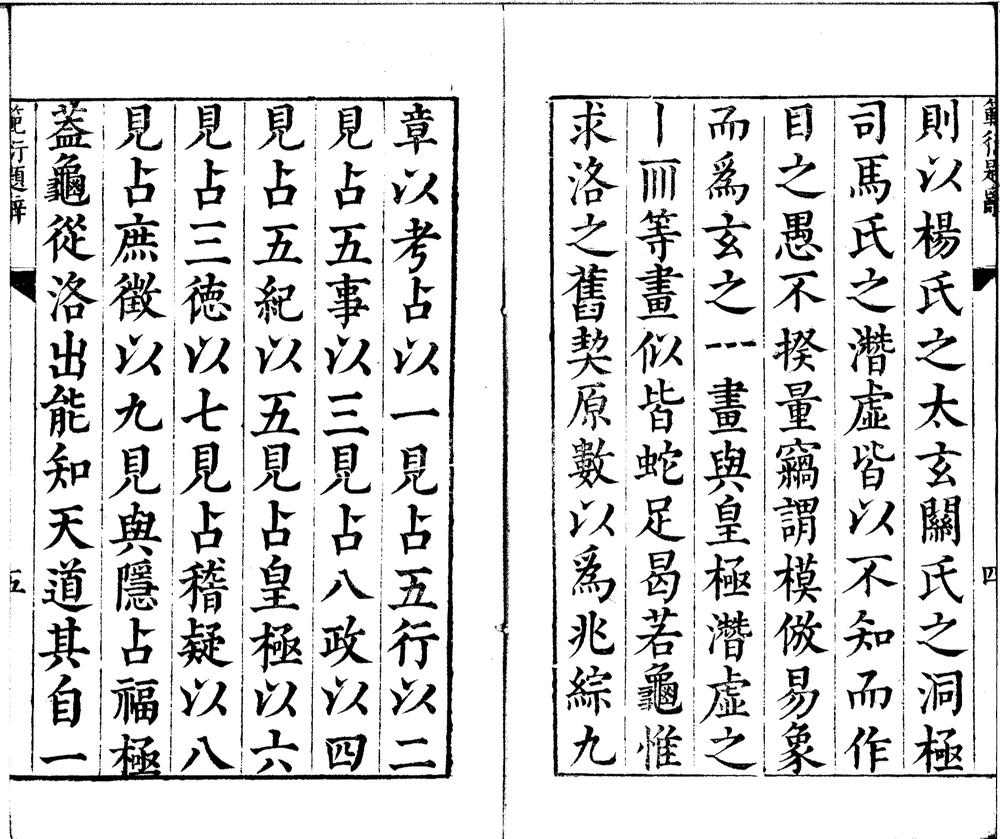 範衍題辭
四
則以楊氏之太玄關氏之洞極
司馬氏之濳虛皆以不知而作
目之愚不揆量竊謂模倣易象
而爲玄之𝌀一畫與皇極濳虛之
丨〣等畫似皆蛇足曷若龜惟
求洛之舊契原數以爲兆綜九
章以考占以一見占五行以二
見占五事以三見占八政以四
見占五紀以五見占皇極以六
見占三徳以七見占稽疑以八
見占庶徵以九見與隱占福極
葢龜從洛出能知天道其自一
範衍題辭
五